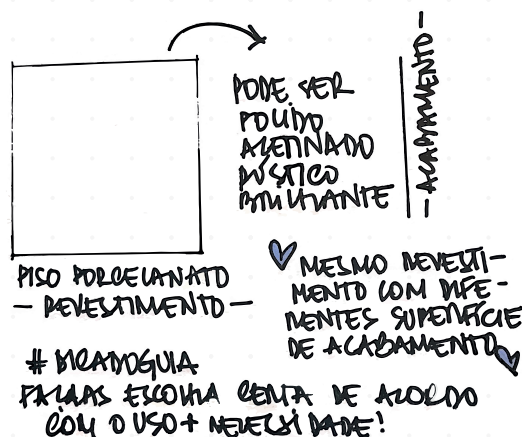 PODE SER
POLIDO
ACETINADO
RÚSTICO
BRILHANTE
— ACABAMENTO —
PISO PORCELANATO
— REVESTIMENTO —
MESMO REVESTI-
MENTO COM DIFE-
RENTES SUPERFÍCIE
DE ACABAMENTO
# DICADOGUIA
ESCOLHA CERTA DE ACORDO
COM O USO + NECESSIDADE!